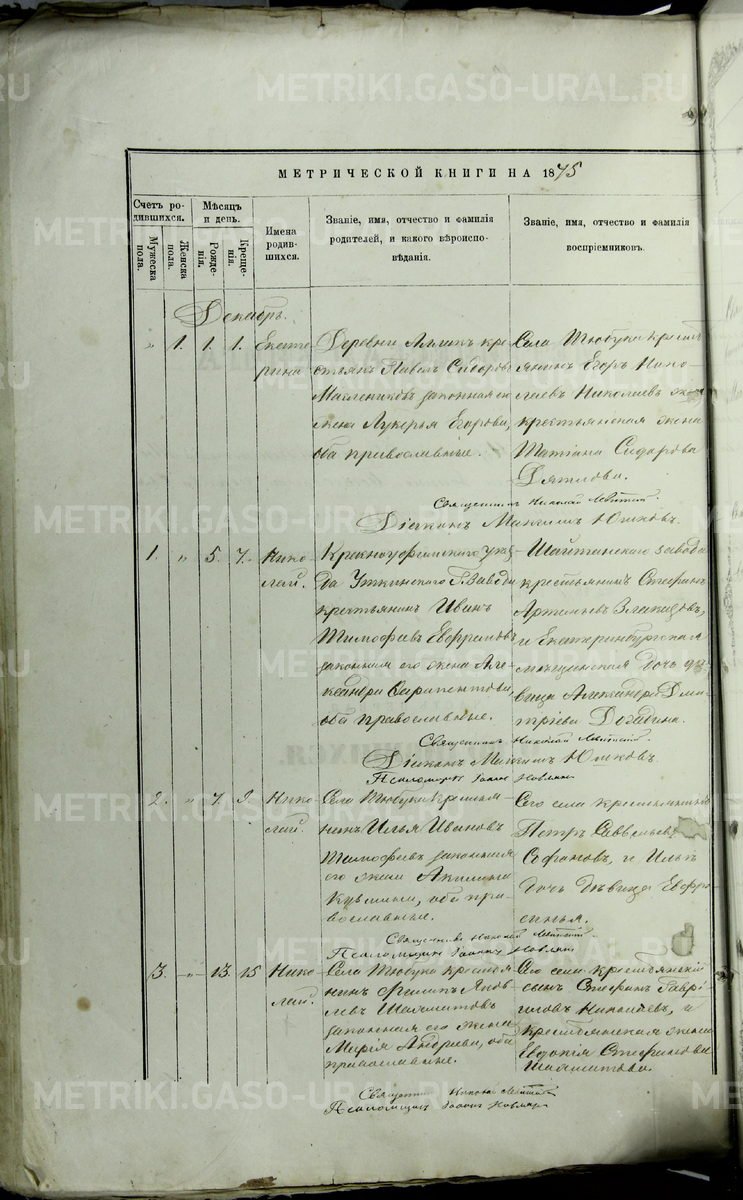 МЕТРИЧЕСКОЙ КНИГИ НА 1875
Счетъ ро-
дившихся.
Мужеска
пола.
Женска
пола.
Мѣсяцъ
и день.
Рожде-
нія.
Креще-
нія.
Имена
родив-
шихся.
Званіе, имя, отчество и фамилія
родителей, и какого вѣроиспо-
вѣданія.
Званіе, имя, отчество и фамилія
воспріемниковъ.
Декабрь.
" 1. 1. 1.
Екате
рина
Деревни кре
стьянъ Павелъ Сидоровъ
Маслениковъ законная его
жена Лукерья Егорова,
оба православные.
Села Тюбука крестья
янинъ Егоръ Нико-
лаевъ Николаевъ
крестьянская жена
Татіана Сидорова
Дятлова.
Священникъ Николай
Діаконъ Максимъ Юшковъ.
1. " 5. 7.
Нико-
лай.
Красноуфимскаго уѣз
да Уткинскаго Завода
крестьянинъ Иванъ
Тимофѣевъ Евфремовъ
законная его жена Але-
ксандра
оба православные.
Шайтанскаго завода
крестьянинъ Стефанъ
Артемьевъ
и Екатеринбургская
мѣщанская дочь дѣ-
вица Александра Дми-
тріева
Священникъ Николай
Діаконъ Максимъ Юшковъ.
Псаломщик Іоаннъ
2. " 7. 9.
Нико-
лай.
Села Тюбука крестья
нинъ Илья Ивановъ
Тимофѣевъ законная
его жена Акилина
Кузмина, оба пра-
вославные.
Того села крестьянинъ
Петръ Савельевъ
и Ильи
дочь дѣвица Евфро-
синья.
Священникъ Николай
Псаломщикъ Іоаннъ
3. " 13. 15
Нико-
лай.
Села Тюбука крестья
нинъ Филипъ Яков
левъ
законная его жена
Марія Андреева, оба
православные.
Того села крестьянскій
сынъ Стефанъ Гаври
ловъ и
крестьянская жена
Евдокія Стефанова
Священникъ Николай
Псаломщикъ Іоаннъ
METRIKI.GASO-URAL.RU